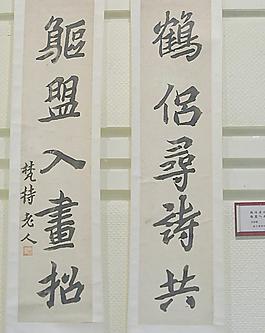 鶴侶尋詩共
鷗盟入畫招
梵持老人